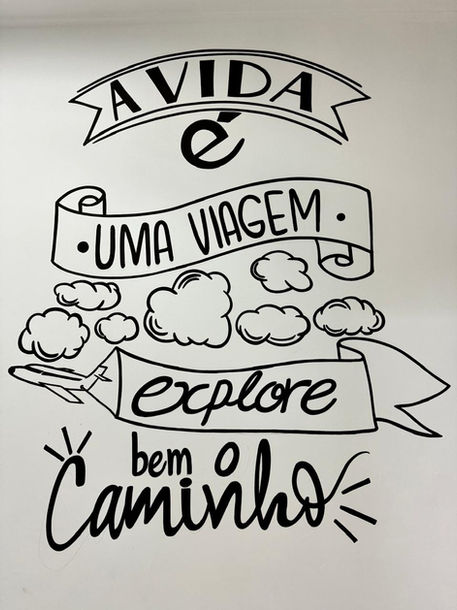 A VIDA
é
• UMA VIAGEM •
explore
bem o
Caminho